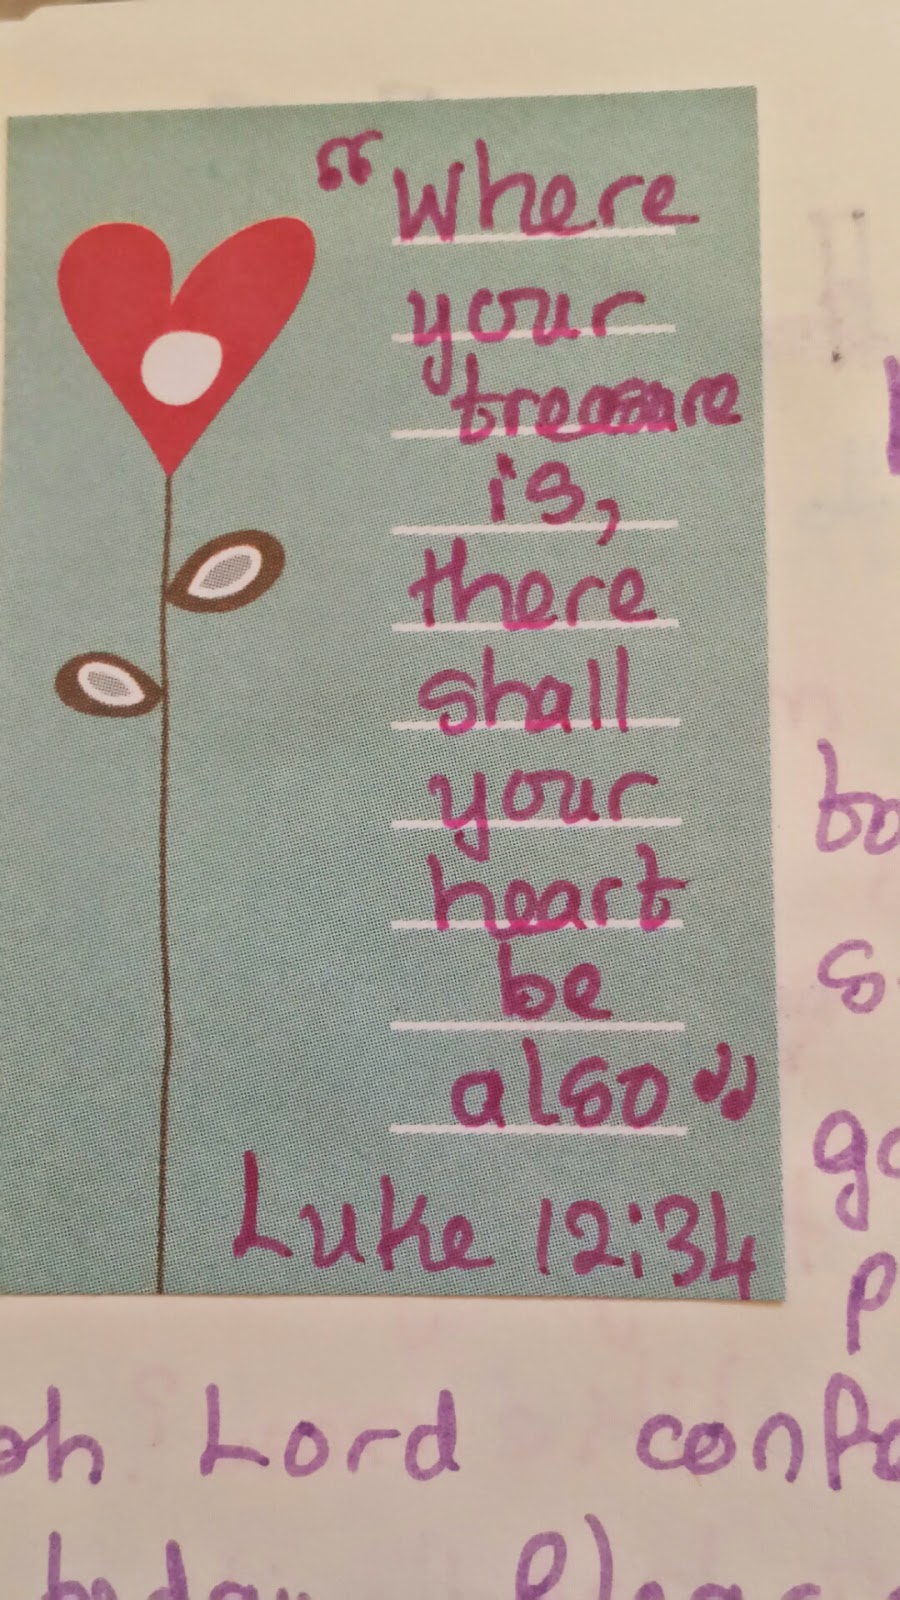 "Where
your
treasure
is,
there
shall
your
heart
be
also"
Luke 12:34
Lord